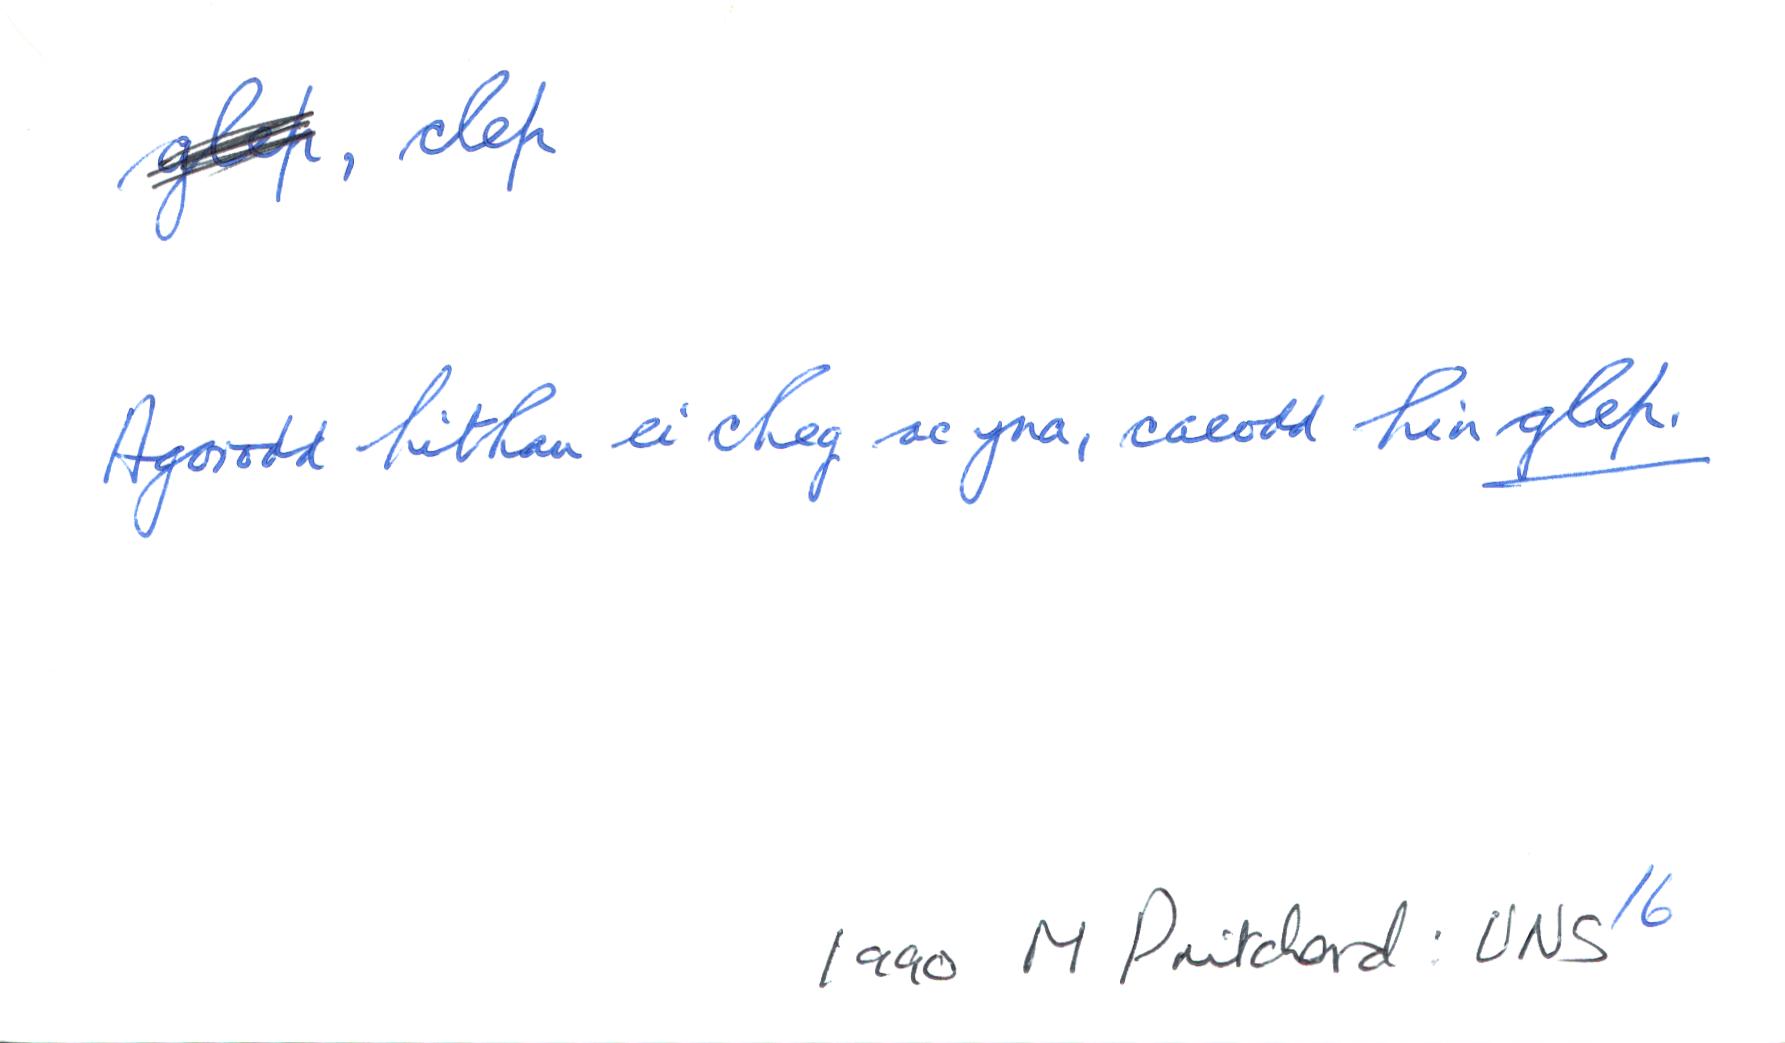 glep, clep
Agorodd hithau ei cheg ac yna, caeodd hi'n glep.
1990 M Pritchard: UNS 16